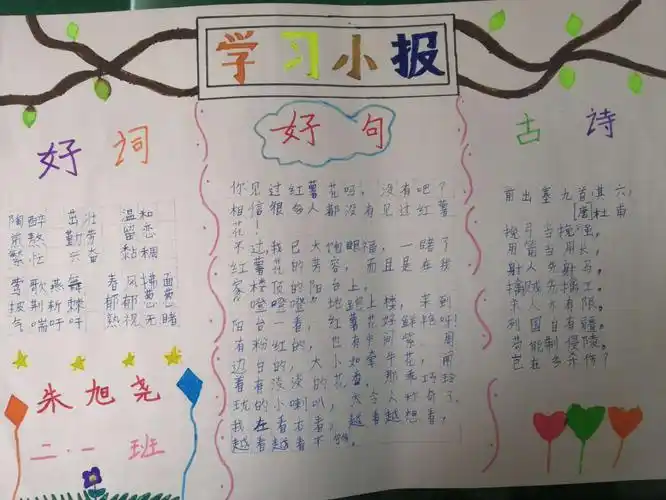 学习小报
好词
陶醉 茁壮 温和
煎熬 勤劳 留恋
繁忙 粘稠
莺歌燕舞 春风拂面
披荆斩棘 郁郁葱葱
气喘吁吁 熟视无睹
朱旭尧
二.一班
好句
你见过红薯花吗，没有吧？
相信很多人都没有见过红薯
花！
不过我已大饱眼福，一睹了
红薯花的芳容，而且是在我
家楼顶的阳台上。
“噔噔噔”地跑上楼，来到
阳台一看，红薯花好鲜艳呀！
有粉红的，也有中间紫，周
边白的，大小如牵牛花，散
着有淡淡的花香，那乖巧玲
珑的小喇叭，太令人称奇了，
我左看右看，越看越想看，
越看越看不够。
古诗
前出塞九首（其六）
[唐]杜甫
挽弓当挽强，
用箭当用长，
射人先射马，
擒贼先擒王。
杀人亦有限，
列国自有疆。
苟能制侵陵，
岂在多杀伤？